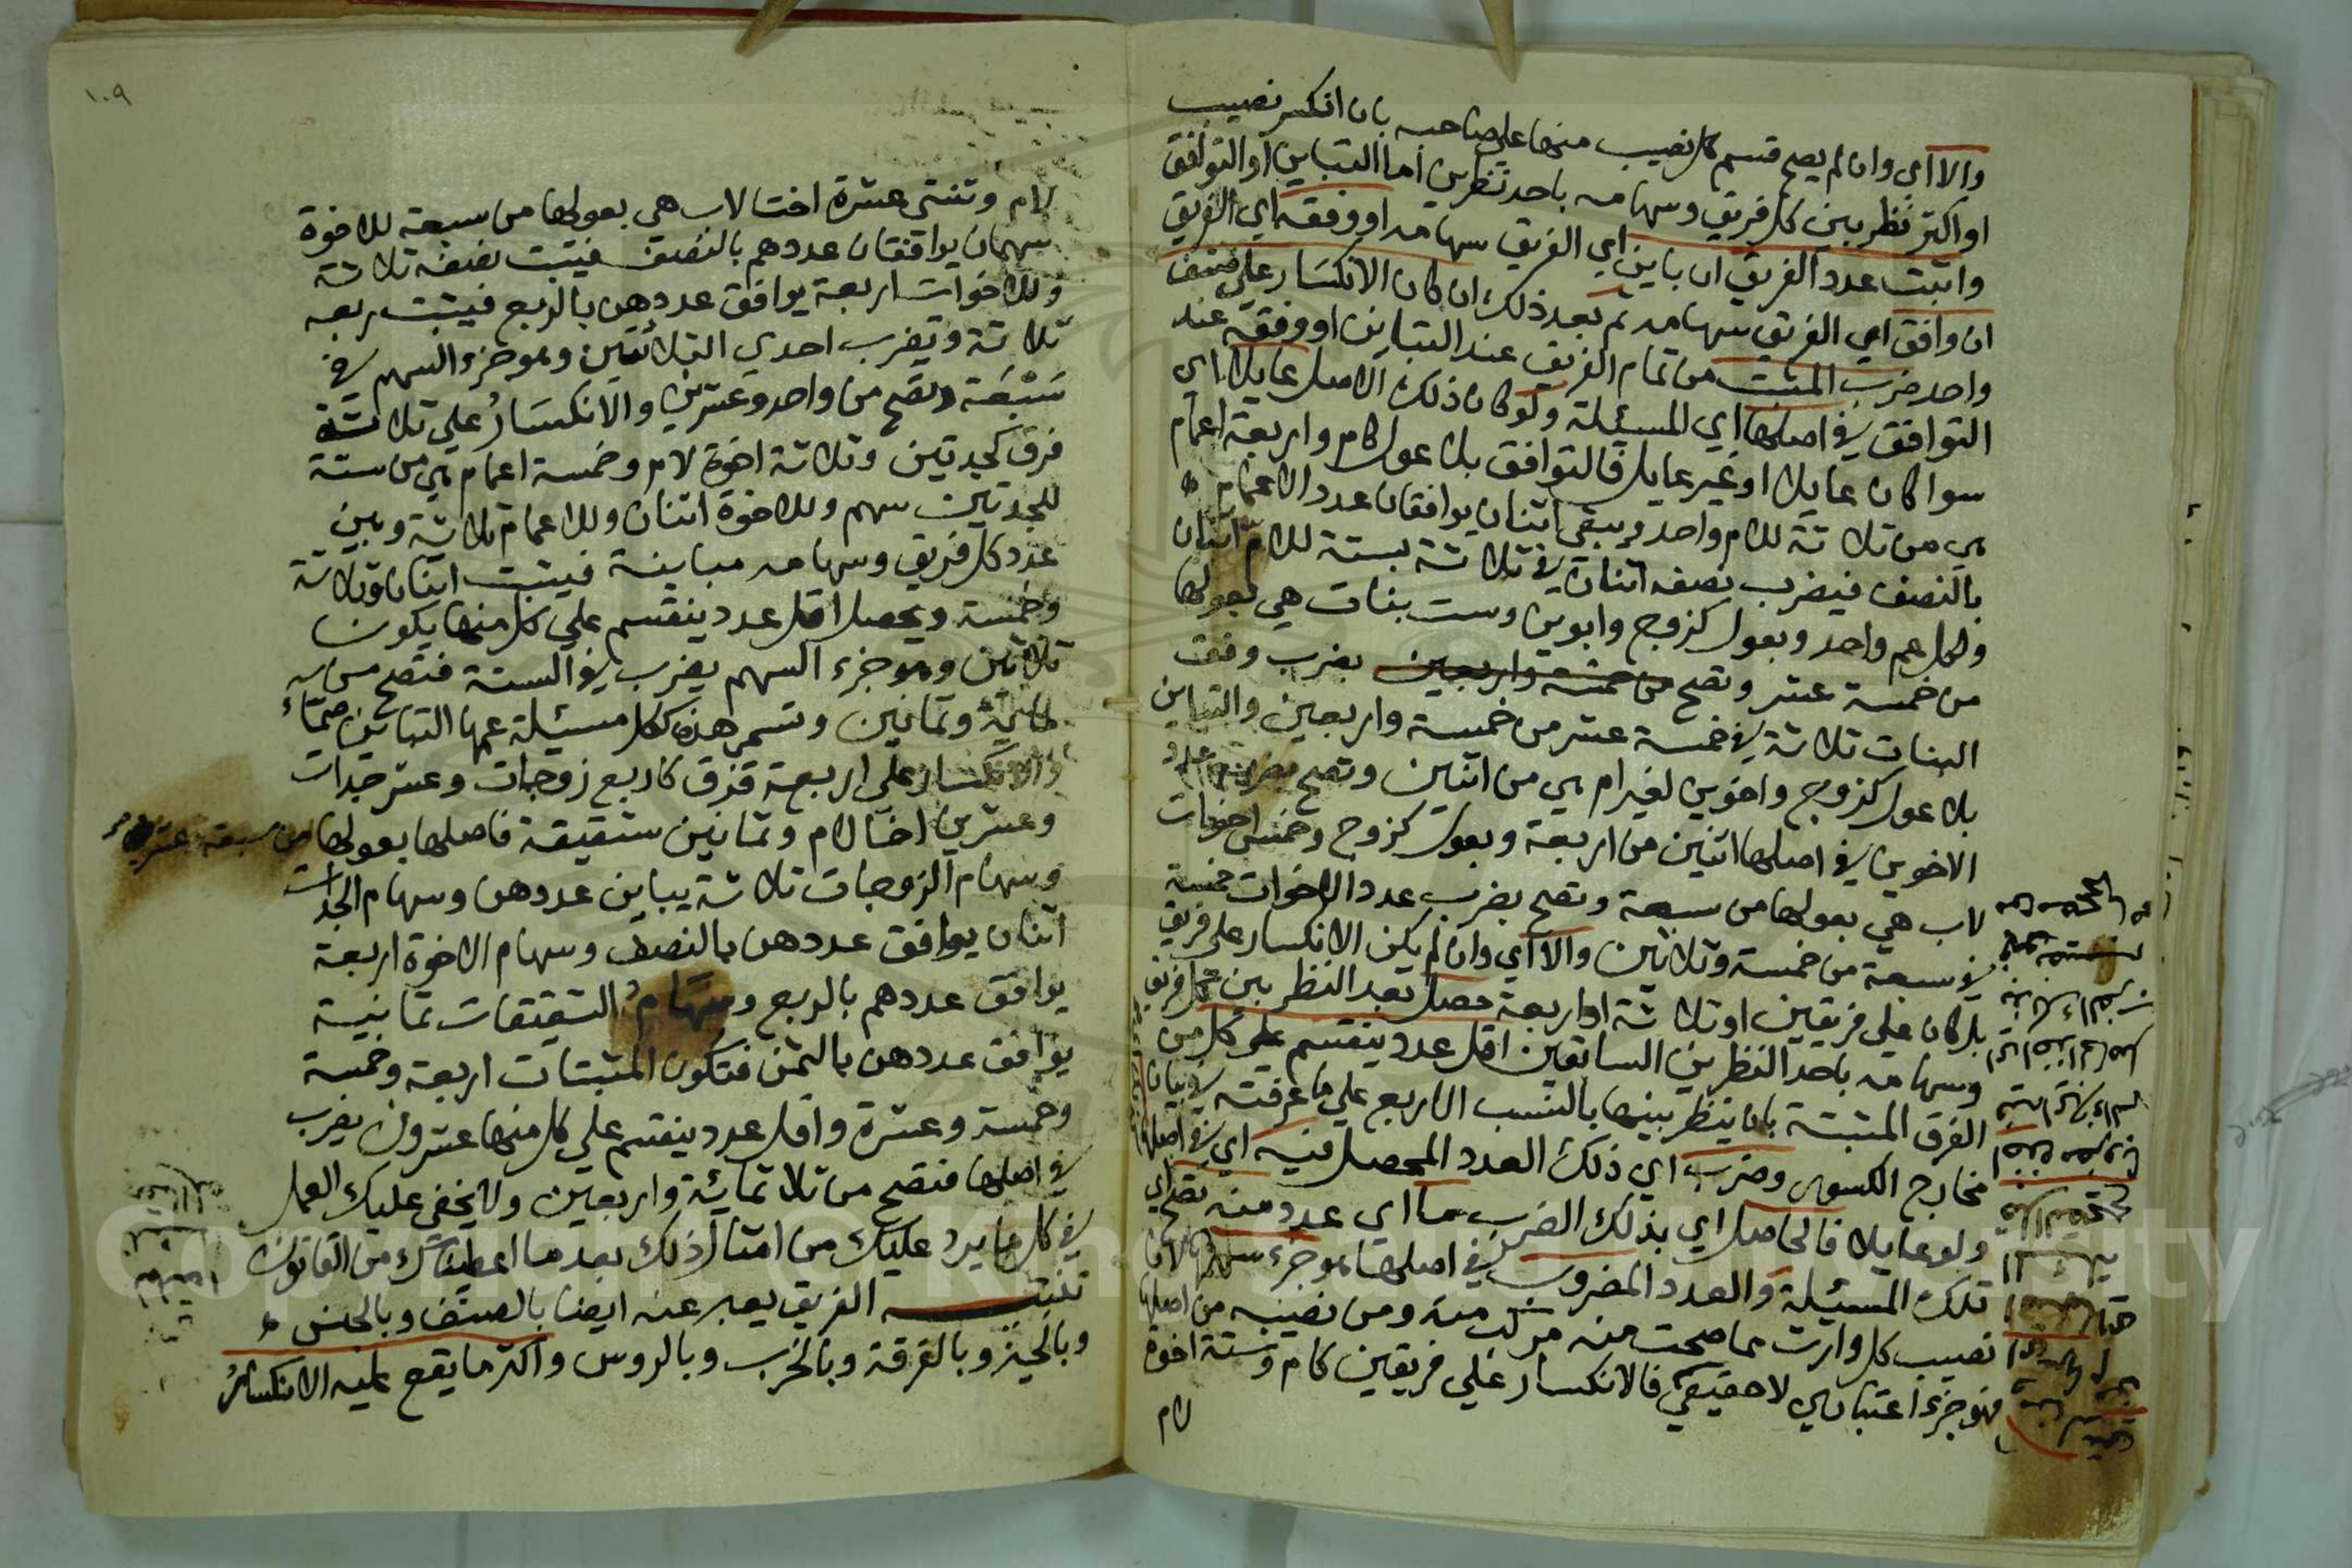 والا اي وان لم يصح قسم كل نصيب منها على صاحبه بان انكسر نصيب
او اكثر نظر بين كل فريق وسهامه باحد نظرين اما التباين او التوافق
واثبت عدد الفريق ان باين اي الفريق سهامه او وفقه اي الفريق
ان وافق اي الفريق سهامه ثم بعد ذلك ان كان الانكسار على صنف
واحد ضرب المثبت من تمام الفريق عند التباين او وفقه عند
التوافق في اصلها اي المسيئلة ولو كان ذلك الاصل عايلا اي
سوا كان عايلا او غير عايل فالتوافق بلا عول كام واربعة اعمام
هي من ثلاثة للام واحد ويبقى اثنان يوافقان عدد الاعمام
بالنصف فيضرب نصفه اثنان في ثلاثة بستة للام اثنان
ولكل عم واحد وبعول كزوج وابوين وست بنات هي بعولها
من خمسة عشر وتصح من خمسة واربعين بضرب وفق
البنات ثلاثة في خمسة عشر من خمسة واربعين والتباين
بلا عول كزوج واخوين لغير ام هي من اثنين وتصح بضرب عدد
الاخوين في اصلها اثنين من اربعة وبعول كزوج وخمس اخوات
لاب هي بعولها من سبعة وتصح بضرب عدد الاخوات خمسة
في سبعة من خمسة وثلاثين والا اي وان لم يكن الانكسار على فريق
بل كان على فريقين او ثلاثة او اربعة حصل بعد النظر بين كل فريق
وسهامه باحد النظرين السابقين اقل عدد ينقسم على كل من
الفرق المثبتة بان ينظر بينها بالنسب الاربع على ما عرفته في بيان
مخارج الكسور وضرب اي ذلك العدد المحصل فيه اي في اصلها
ولو عايلا فالحاصل اي بذلك الضرب ما اي عدد منه تصح اي
تلك المسيئلة والعدد المضروب في اصلها هو جزء سهمها لان
نصيب كل وارث مما صحت منه مركب منه ومن نصيبه من اصلها
فهو جزء اعتباري لا حقيقي فالانكسار على فريقين كام وستة اخوة
لام
١٠٩
لام وثنتي عشرة اختا لاب هي بعولها من سبعة للاخوة
سهمان يوافقان عددهم بالنصف فيثبت نصفه ثلاثة
وللاخوات اربعة يوافق عددهن بالربع فيثبت ربعه
ثلاثة وتضرب احدي الثلاثتين وهو جزء السهم في
سبعة وتصح من واحد وعشرين والانكسار على ثلاثة
فرق كجدتين وثلاثة اخوة لام وخمسة اعمام هي من ستة
للجدتين سهم وللاخوة اثنان وللاعمام ثلاثة وبين
عدد كل فريق وسهامه مباينة فيثبت اثنان وثلاثة
وخمسة ويحصل اقل عدد ينقسم على كل منها يكون
ثلاثين وهو جزء السهم يضرب في الستة فتصح من
ماية وثمانين وتسمى هذه كل مسيئلة عمها التباين صماء
والانكسار على اربعة فرق كاربع زوجات وعشر جدات
وعشرين اخا لام وثمانين شقيقة فاصلها بعولها من سبعة عشر
وسهام الزوجات ثلاثة يباين عددهن وسهام الجدات
اثنان يوافق عددهن بالنصف وسهام الاخوة اربعة
يوافق عددهم بالربع وسهام الشقيقات ثمانية
يوافق عددهن بالثمن فتكون المثبتات اربعة وخمسة
وخمسة وعشرة واقل عدد ينقسم على كل منها عشرون يضرب
في اصلها فتصح من ثلاثمائة واربعين ولا يخفى عليك العمل
في كل ما يرد عليك من امثال ذلك بعد ما اعطيناك من القانون
تنبيه الفريق يعبر عنه ايضا بالصنف وبالجنس
وبالحيز وبالفرقة وبالحزب وبالروس واكثر ما يقع عليه الانكسار